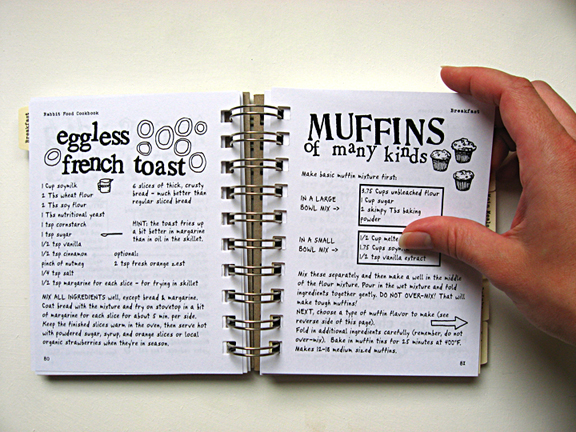 Breakfast
Rabbit Food Cookbook
eggless
french toast
1 Cup soymilk
2 Tbs wheat flour
2 Tbs soy flour
1 Tbs nutritional yeast
1 tsp cornstarch
1 tsp sugar
1/2 tsp vanilla
1/2 tsp cinnamon
pinch of nutmeg
1/4 tsp salt
1/2 tsp margarine for each slice - for frying in skillet
6 slices of thick, crusty
bread - much better than
regular sliced bread
HINT: the toast fries up
a bit better in margarine
than in oil in the skillet.
optional:
2 tsp fresh orange zest
MIX ALL INGREDIENTS well, except bread & margarine.
Coat bread with the mixture and fry on stovetop in a bit
of margarine for each slice for about 5 min. per side.
Keep the finished slices warm in the oven, then serve hot
with powdered sugar, syrup, and orange slices or local
organic strawberries when they're in season.
80
Breakfast
MUFFINS
of many kinds
Make basic muffin mixture first:
IN A LARGE
BOWL MIX ->
3.75 Cups unbleached flour
1 Cup sugar
2 skimpy Tbs baking
powder
IN A SMALL
BOWL MIX ->
1/2 Cup
1.75 Cups
1/2 tsp vanilla extract
Mix these separately and then make a well in the middle
of the flour mixture. Pour in the wet mixture and fold
ingredients together gently. DO NOT OVER-MIX! That will
make tough muffins!
NEXT, choose a type of muffin flavor to make (see
reverse side of this page).
Fold in additional ingredients carefully (remember, do not
over-mix). Bake in muffin tins for 25 minutes at 400°F.
Makes 12-18 medium sized muffins.
81